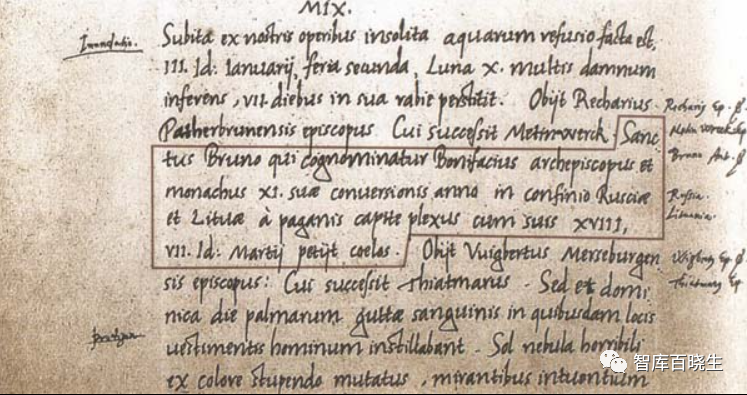 MIX.
Inundatio.
Subita ex nostris operibus insolita aquarum refusio facta est,
III. Id: Ianuarij, feria secunda, Luna X. multis damnum
inferens, VII. diebus in sua rabie perstitit. Obijt Recharius
Patherbrunensis episcopus Cui successit Meinwerck. Sanc
tus Bruno qui cognominatur Bonifacius archepiscopus et
monachus XI. suæ conversionis anno in confinio Rusciæ
et Lituæ à paganis capite plexus cum suis XVIII,
VII. Id: Martij petijt coelos. Obijt Vuigbertus Merseburgen
sis episcopus: Cui successit Thiatmarus. Sed et domi
nica die palmarum guttæ sanguinis in quibusdam locis
vestimentis hominum instillabant. Sol nebula horribili
ex colore stupendo mutatus, mirantibus intuentium
Recharig Ep.
Ep
Bruno
Russia.
Lituania.
Ep.
Thiatmarg Ep
智库百晓生